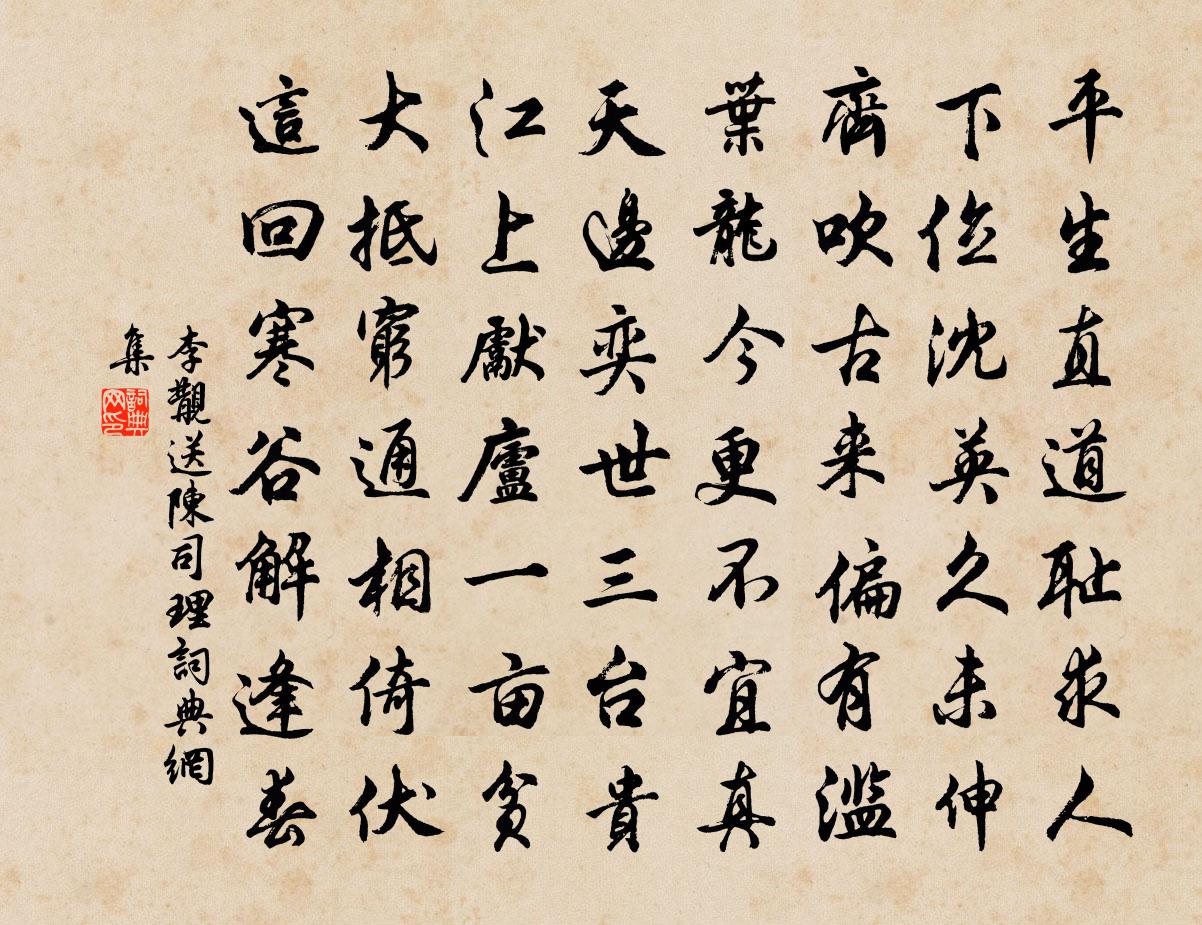 平生直道耻求人
下位沈英久未伸
齊吹古来偏有濫
葉龍今更不宜真
天邊奕世三台貴
江上獻廬一亩貧
大抵窮通相倚伏
這回寒谷解逢春
李覯送陳司理詞典網
集
詞典网印